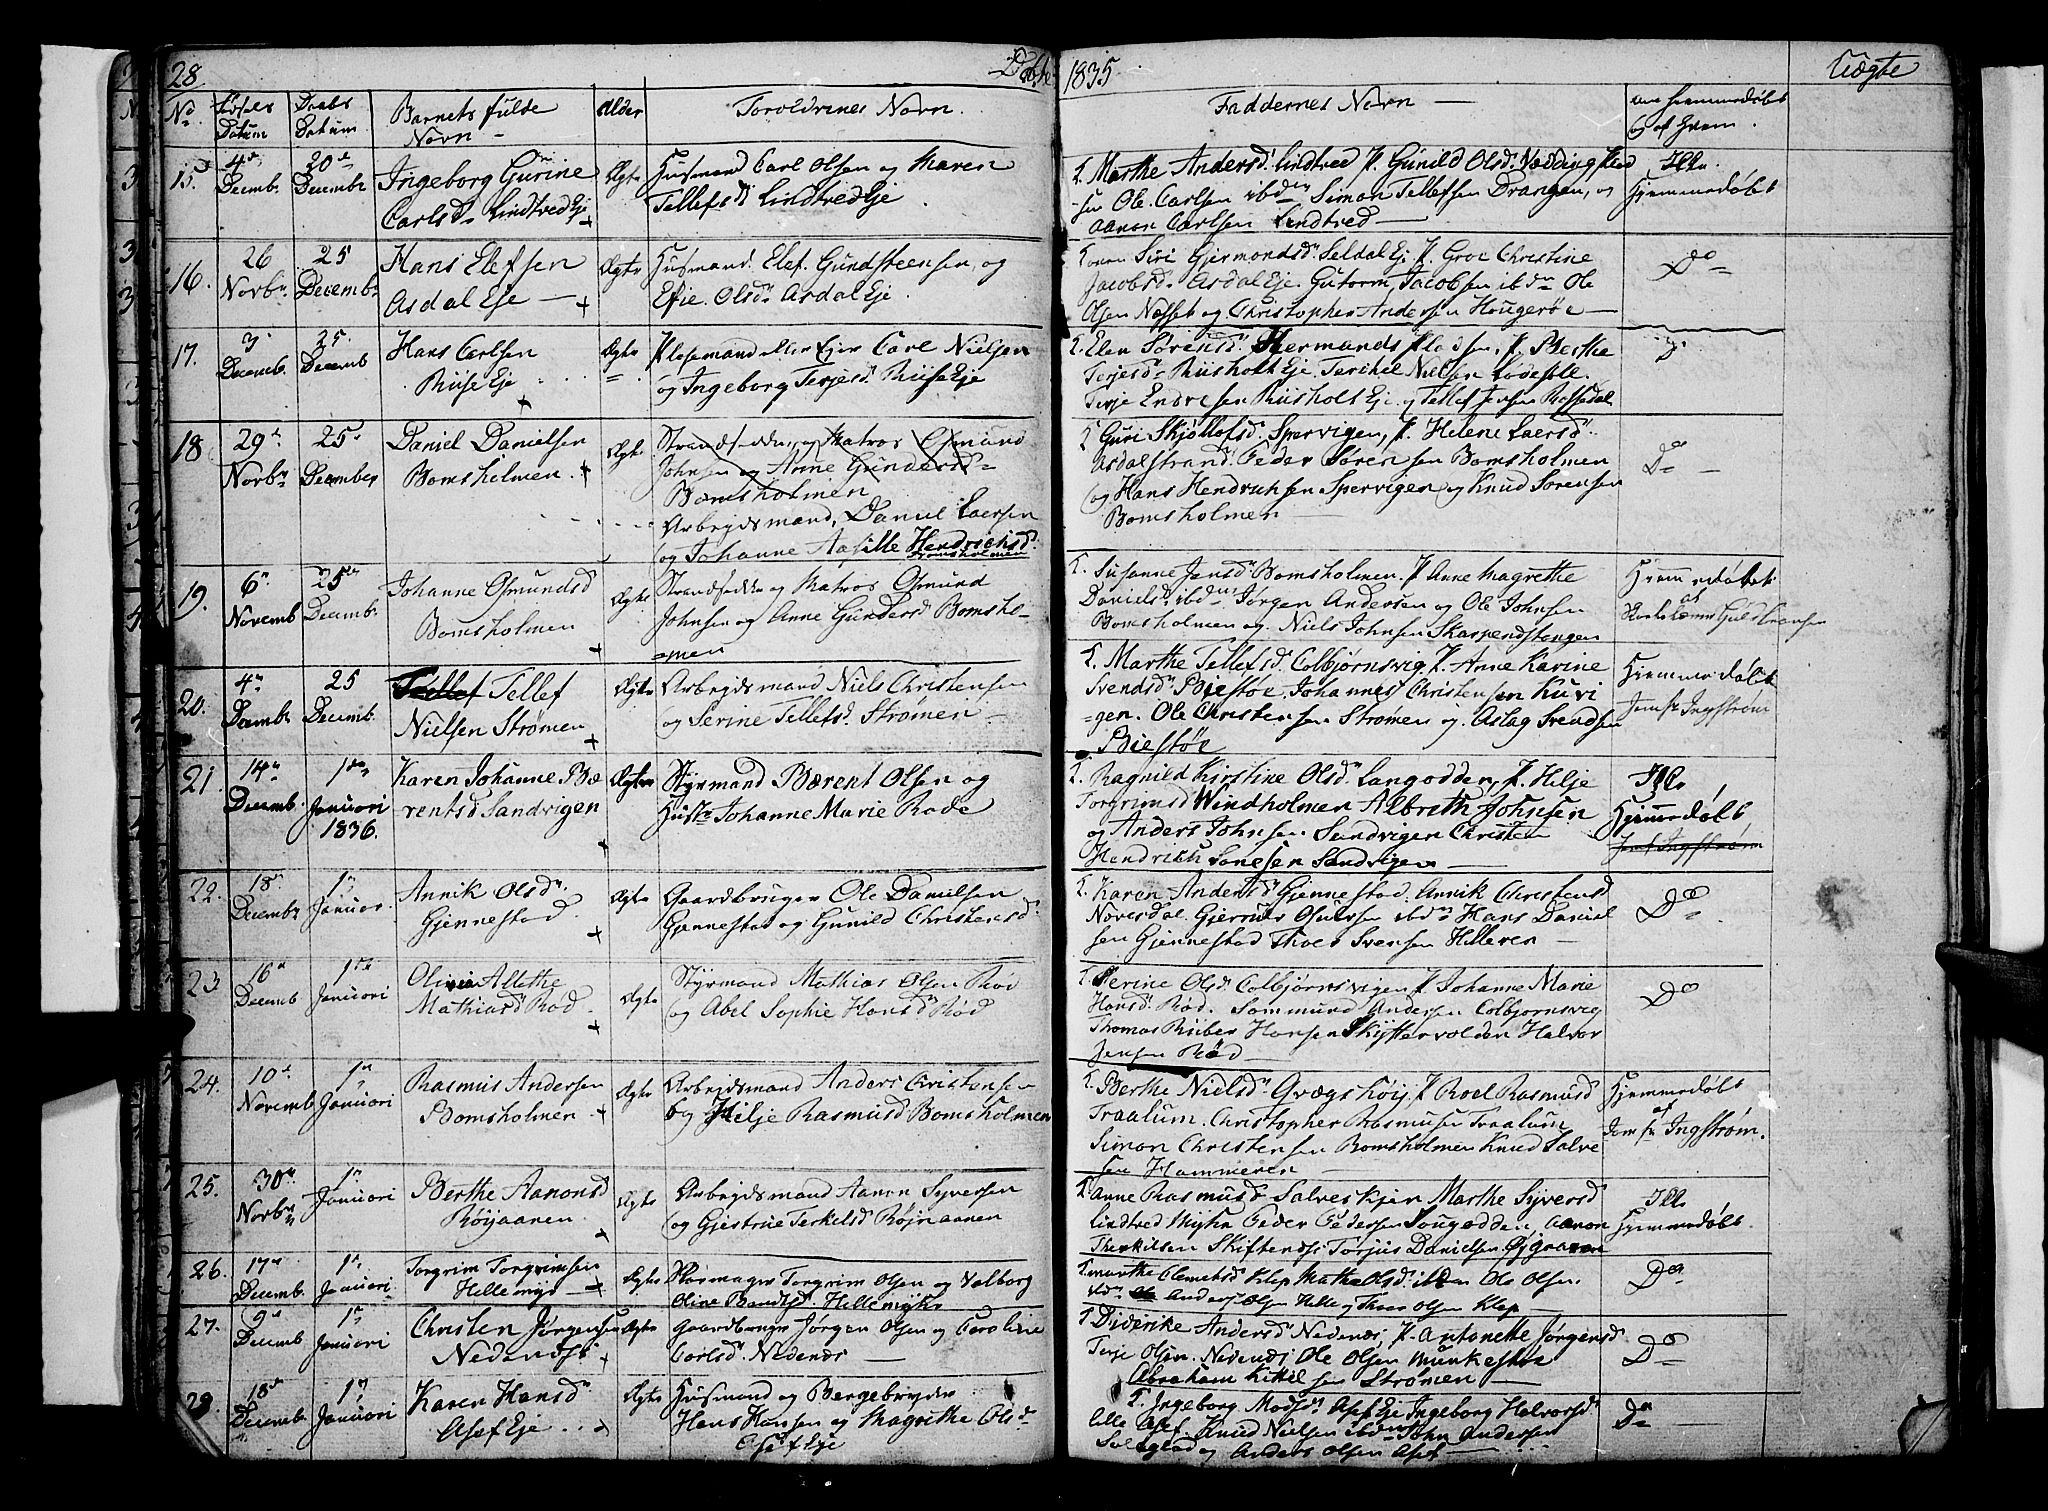 28 Døbte 1835 Uægte
No Fødsels Datum Daabs Datum Barnets fulde Navn Alder Forældrenes Navn. Faddernes Navn om hjemmedøbt og af hvem.
15. 4de Decemb. 20de Decembr Ingeborg Gurine Carlsd. Lindtved Eje Ægte Huusmand Carl Olsen og Maren Tellefsd. Lindtved Eje
Marthe Andersd. Lindtved P. Gunild Olsd.
Ole Carlsen ibdm Simon Tellefsen Drangen, og
Aanon Carlsen Lindtved
Ikke Hjemmedøbt
16. 26 Novbr 25 Decembr Hans Elefsen Asdal Eje Ægte Husmand Elef Gundsteensen, og Efie Olsd. Asdal Eje
Siri Gjermondsd. Seldal Ej P. Groe Christine
Jacobsd. Asdal Eje. Gutorm Jacobsen ibdm Ole
Olsen Næsset og Christopher Andersen Hougerøe
Do
17. 3 Decemb. 25 Decemb Hans Carlsen Riise Eje Ægte Carl Nielsen og Ingeborg Terjesd. Riise Eje
Elen Sørensd. P. Berthe
Terjesd. Riisholt Eje Terchel Nielsen
Terje Endresen Riisholt Eje og Tellef Jensen Rossedal
18 29de Novbr 25 December Daniel Danielsen Bomsholmen Ægte Strandsidder og Matros Osmund
Johnsen og Anne Gundersd
Bomsholmen
Arbejdsmand, Daniel Laersen
og Johanne Aasille Hendrichsd.
Bomsholmen
Guri Skjøllofsd. Spervigen, P. Helene Laersd.
Asdalstrand. Peder Sørensen Bomsholmen
og Hans Hendrichsen Spervigen og Knud Sørensen
Bomsholmen
Do
19. 6 Novemb 25de Decemb. Johanne Osmundsd Bomsholmen Ægte Strandsidder og Matros Osmund
Johnsen og Anne Gundersd Bomsho-
men
Susanne Jensd. Bomsholmen. P. Anne Magrethe
Danielsd. ibdm Jørgen Andersen og Ole Johnsen
Bomsholmen og Niels Johnsen Skarpendstangen
Hjemmedøbt af
20. 4 Decembr 25 Decemb. Tellef Tellef Nielsen Strømen Ægte Arbejdsmand Niels Christensen
og Serine Tellefsd. Strømen
Marthe Tellefsd. Colbjørnsvig P. Anne Karine
Svendsd. Biestøe. Johannes Christensen Kuvi
gen. Ole Christensen Strømen og Aslag Svendsen
Biestøe
Hjemmedøbt Jomfr Ingstrøm
21. 14 Decemb. 1te Januari 1836. Karen Johanne Bærentsd Sandvigen Ægte Styrmand Bærent Olsen og
Hustr Johanne Marie Rode
Ragnild Kirstine Olsd. Langodden, P. Hilje
Torgrimsd Windholmen Albreth Johnsen
og Anders Johnsen Sandvigen Christen
Hendrich Sandvigen
Ikke Hjemmedøbt
Jomf Ingstrøm
22. 18 Decembr 1 Januar. Annik Olsd. Gjennestad Ægte Gaardbruger Ole Danielsen
Gjennestad og Gunild Christensd.
Karen Andersd Gjennestad. Annik Christensd
ibdm Hans Daniel
sen Gjennestad Thoer Svensen Helleren
Do
23 16 Decemb 1te Januari Olivia Alethe Mathiasd Rød Ægte Styrmand Mathias Olsen Rød
og Abel Sophie Hansd Rød
Serine Olsd Colbjørnsvigen P. Johanne Marie
Hansd. Rød. Sommund Andersen Colbjørnsvig
Thomas Riiber Hansen Skyttervolden Halvor
Jensen Rød
Do
24. 10de Novemb 1te Januari Rasmus Andersen Bomsholmen Ægte Arbejdsmand Anders Christensen
og Hilje Rasmusd Bomsholmen
Berthe Nielsd. P. Roel Rasmusd
Traalum. Christopher Rasmusen Traalum
Simon Christensen Bomsholmen Knud Salve
sen Hammeren
Hjemmedøbt af Jomfr Ingstrøm.
25. 30te Novbr 1 Januari Berthe Aanonsd Røijaanen Ægte Arbejdsmand Aanon Syversen
og Gjertrue Terkelsd Røjnaanen
Anne Rasmusd Marthe Syversd
Lindtved Peder Pedersen Aanon
Therkilsen Skiftenæs Torjus Danielsen
Ikke Hjemmedøbt.
26. 17 Decemb. 1 Januari Torgrim Torgrimsen Hellemyr Ægte Torgrim Olsen og Valborg
Oline Hellemyr
Marthe Clemetsd Klep Marthe Olsd. ibdm Ole Olsen.
Anders Olsen Helle og Thoer Olsen Klep
Do
27. 9 Decemb 1 Januari Christen Jørgensen Nedenæs Ægte Gaardbruger Jørgen Olsen og Caroline
Carlsd. Nedenæs
Diderike Andersd Nedenæs, P. Antonette Jørgensd
Terje Olsen. Nedenæs Ole Olsen Munkestøe
Abraham Kittilsen Strømen
Do
28. 18de Decemb 1 Januari Karen Hansd. Asef Eje Ægte Husmand og Bergebryder
Hans Hansen og Magrethe Olsd
Asef Eje
Ingeborg Madsd. Asef Eje Ingeborg Halvorsd
Asef Knud Nielsen ibdm John Andersen
og Anders Olsen Asef
Do